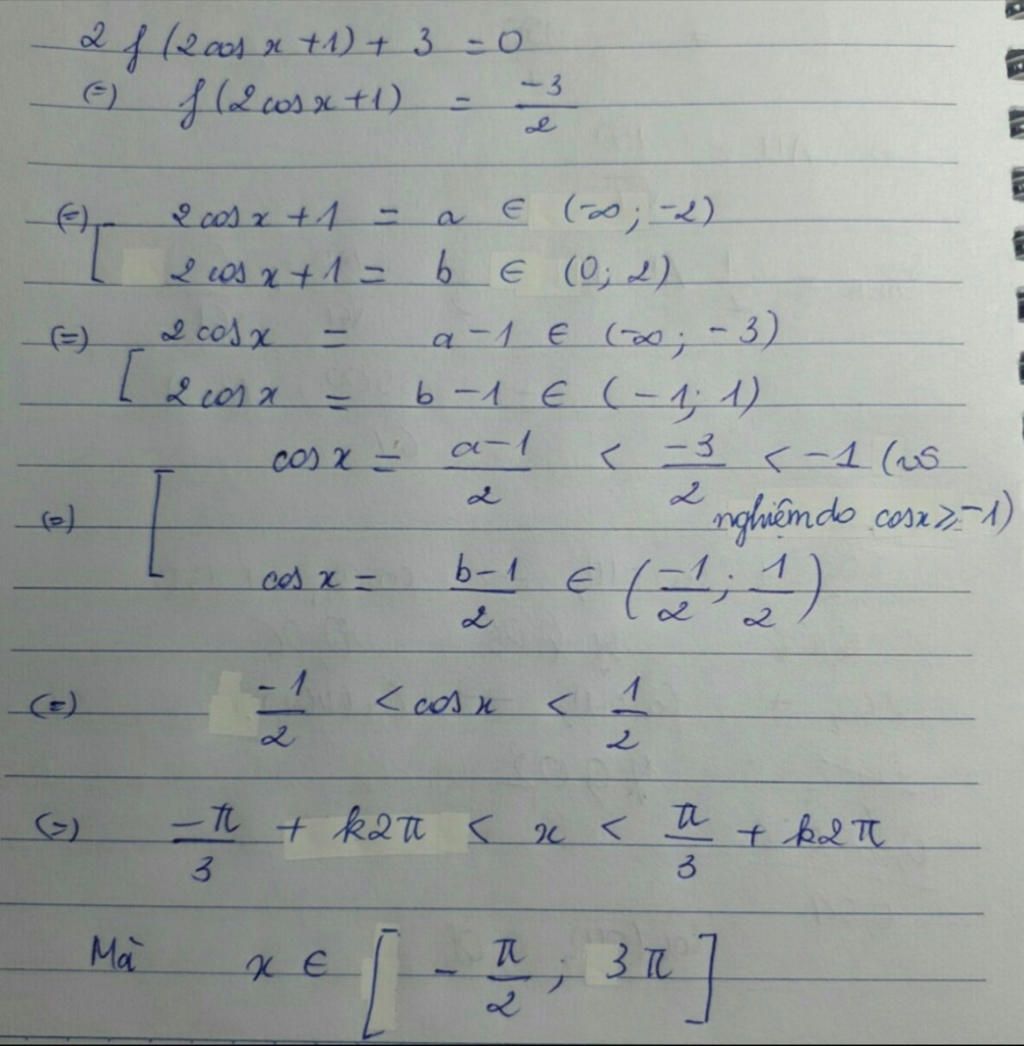 2 f(2cos x + 1) + 3 = 0
(=) f(2cosx+1) = -3/2
(=) [ 2cosx + 1 = a ∈ (-∞; -2)
2cosx + 1 = b ∈ (0; 2)
(=) [ 2cosx = a - 1 ∈ (-∞; -3)
2cosx = b - 1 ∈ (-1; 1)
(=) [ cosx = (a-1)/2 < -3/2 < -1 (vô
nghiệm do cosx ≥ -1)
cosx = (b-1)/2 ∈ (-1/2; 1/2)
(=) -1/2 < cosx < 1/2
(=) -π/3 + k2π < x < π/3 + k2π
Mà x ∈ [-π/2; 3π]